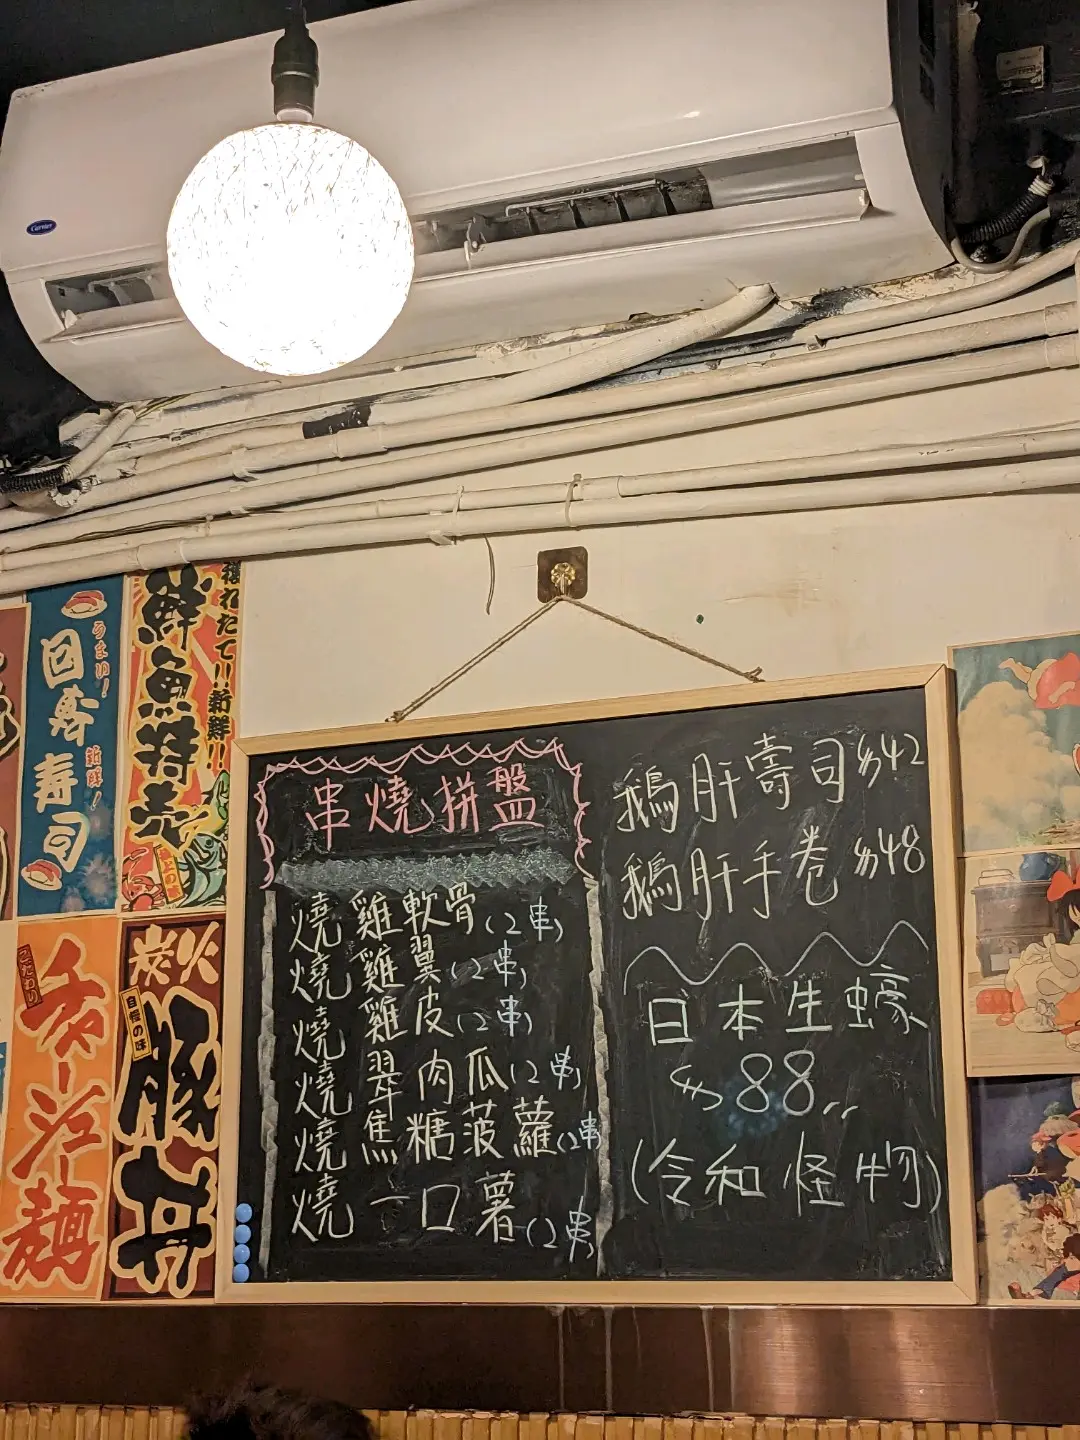 Carrier
うまい!
回轉
寿司
新鮮!
獲れたて!!新鮮!!
鮮魚特売
海の味
こだわり
チャーシュー麺
炭火
自慢の味
豚丼
串燒拼盤
燒雞軟骨(2串)
燒雞翼(2串)
燒雞皮(2串)
燒翠肉瓜(2串)
燒焦糖菠蘿(2串)
燒一口薯(2串)
鵝肝壽司$42
鵝肝手卷$48
日本生蠔
$88
(令和怪物)